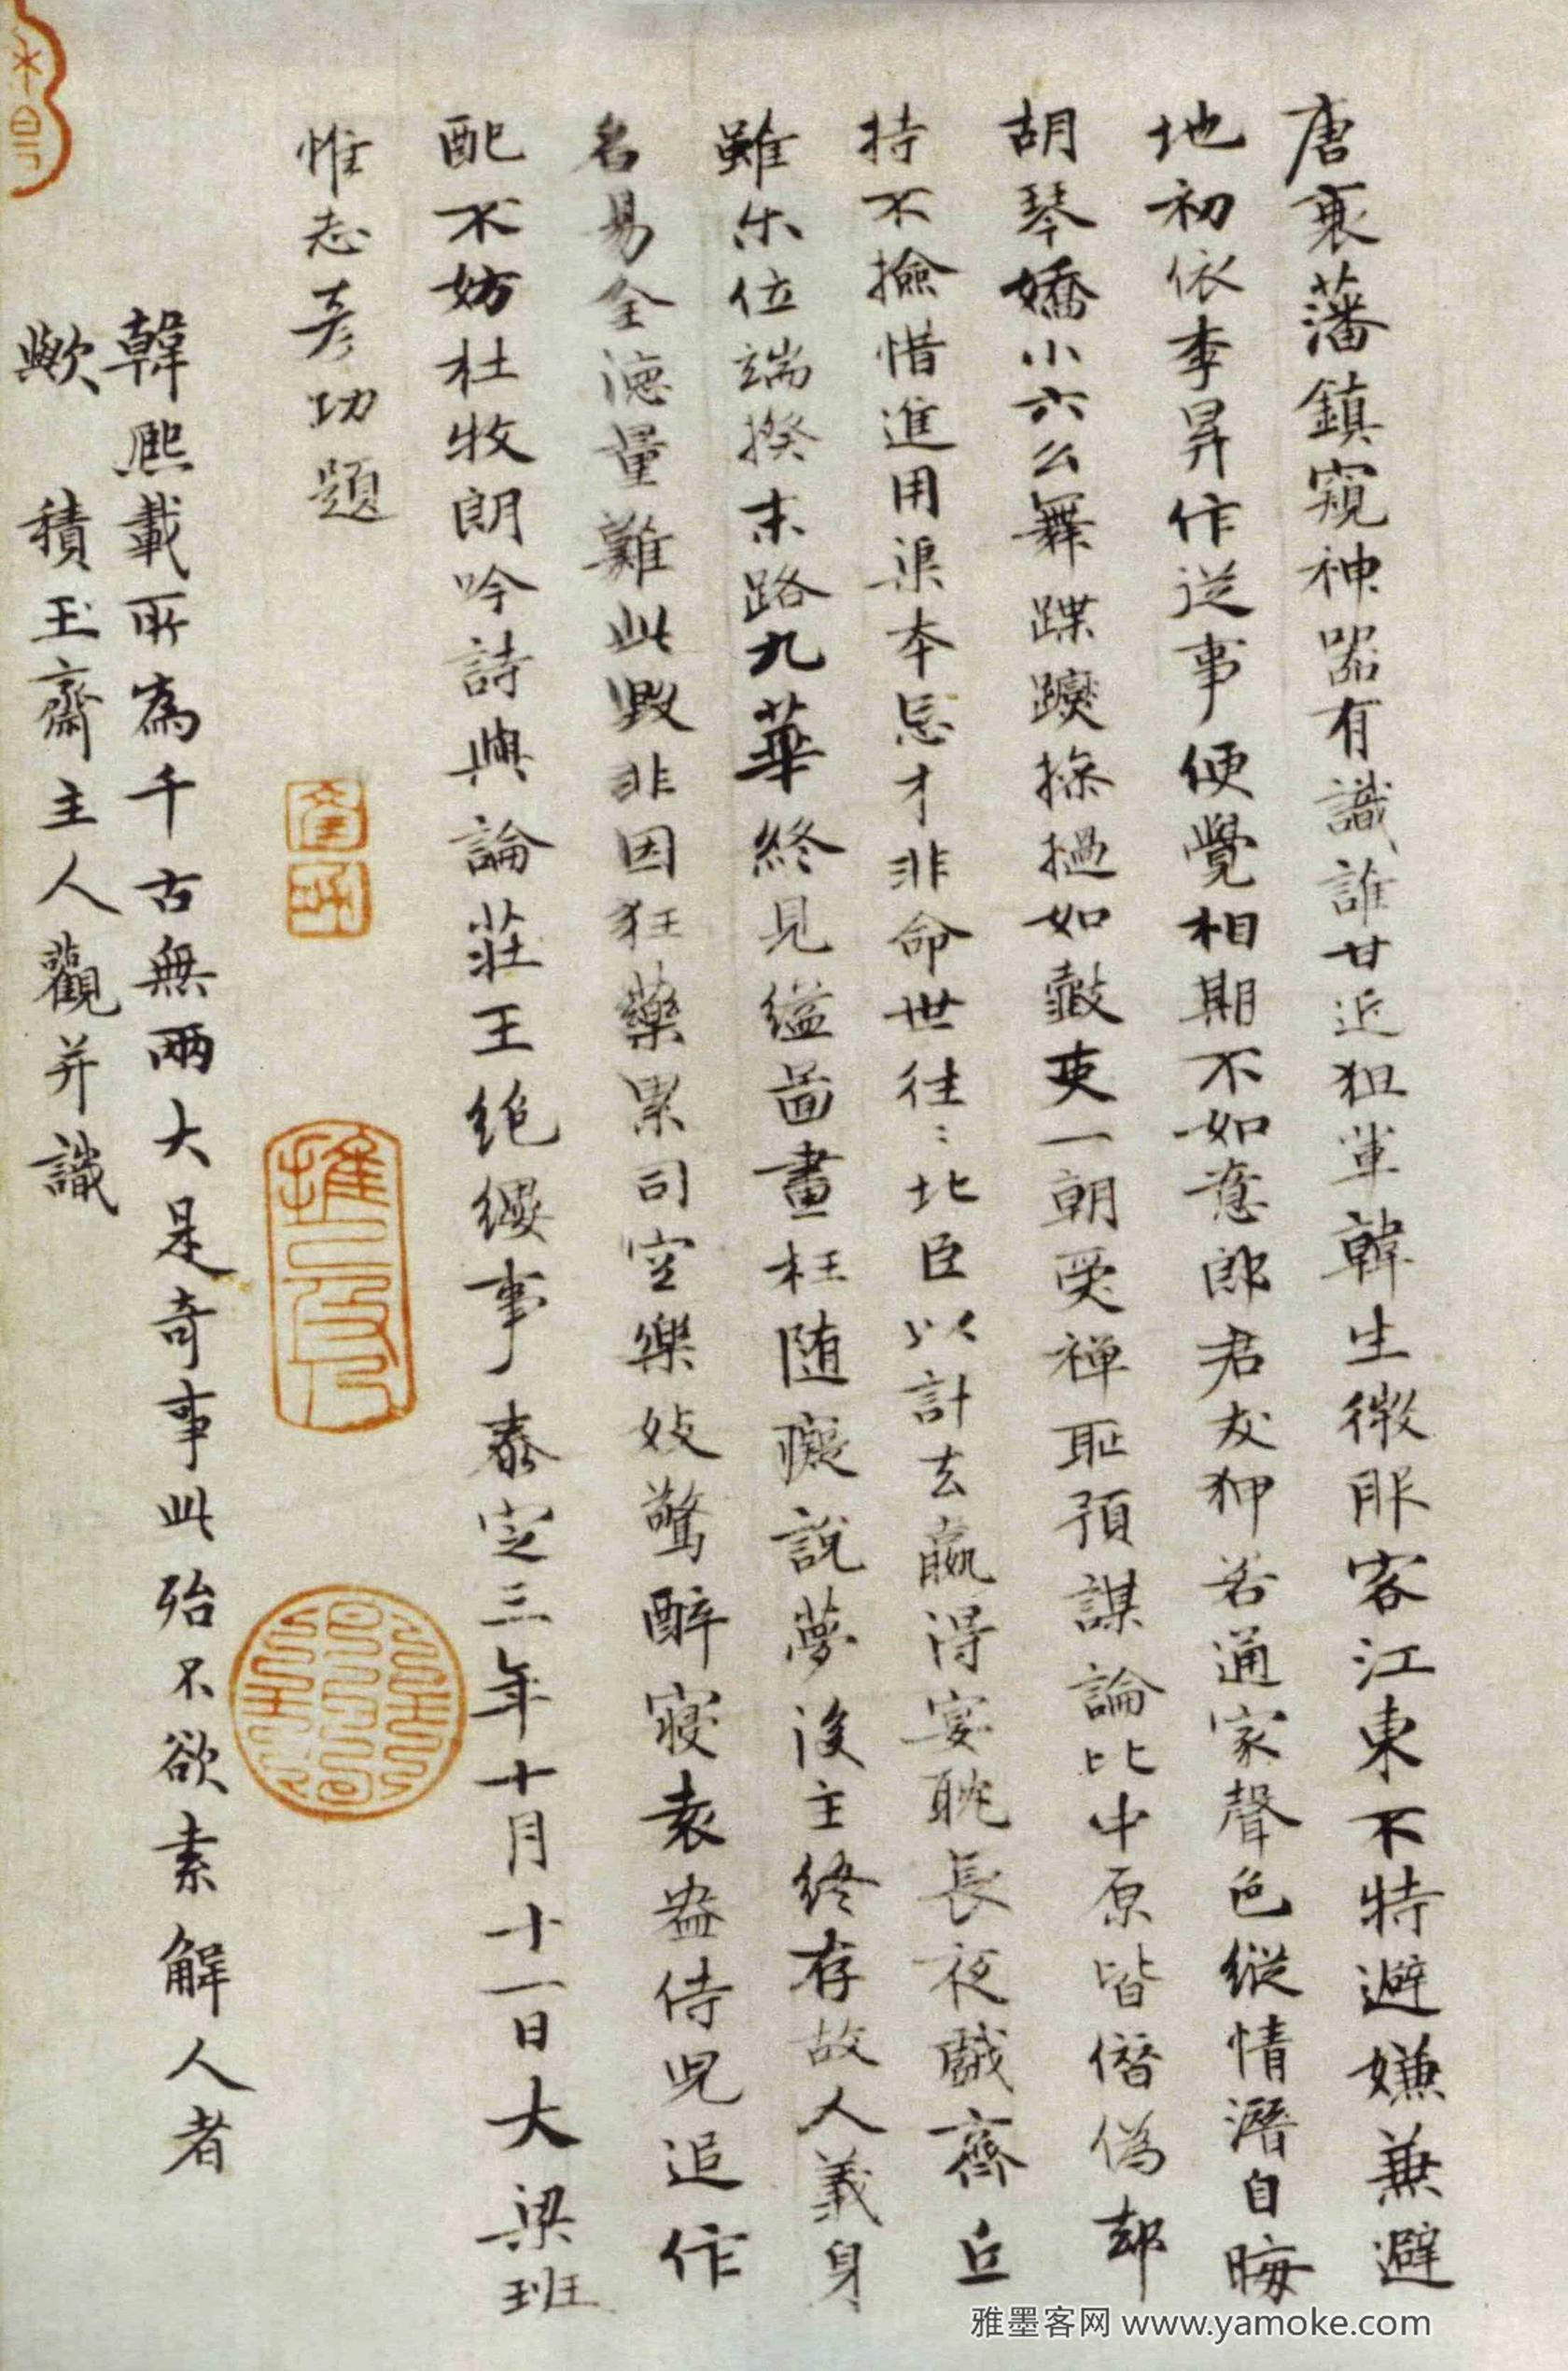 唐衰藩鎮窺神器有識誰甘近狙軍韓生微服客江東不特避嫌兼避
地初依李昪作逆事便覺相期不如意郎君友狎若通家聲色縱情潛自晦
胡琴嬌小六么舞蹀躞摻撾如鼓吏一朝受禪恥預謀論比中原皆僭偽却
持不撿惜進用渠本忌才非命世往〻北臣以計去贏得宴耽長夜戲齊丘
雖尔位端揆末路九華終見縊啚畫枉随癡說夢後主終存故人義身
名易全德量難此毀非因狂藥累司空樂妓驚醉寢袁盎侍兒追作
配不妨杜牧朗吟詩與論莊王絶纓事泰定三年十月十一日大梁班
惟志彥功題
韓熙載所為千古無兩大是奇事此殆不欲索解人者
歟 積玉齋主人觀并識
雅墨客网 www.yamoke.com